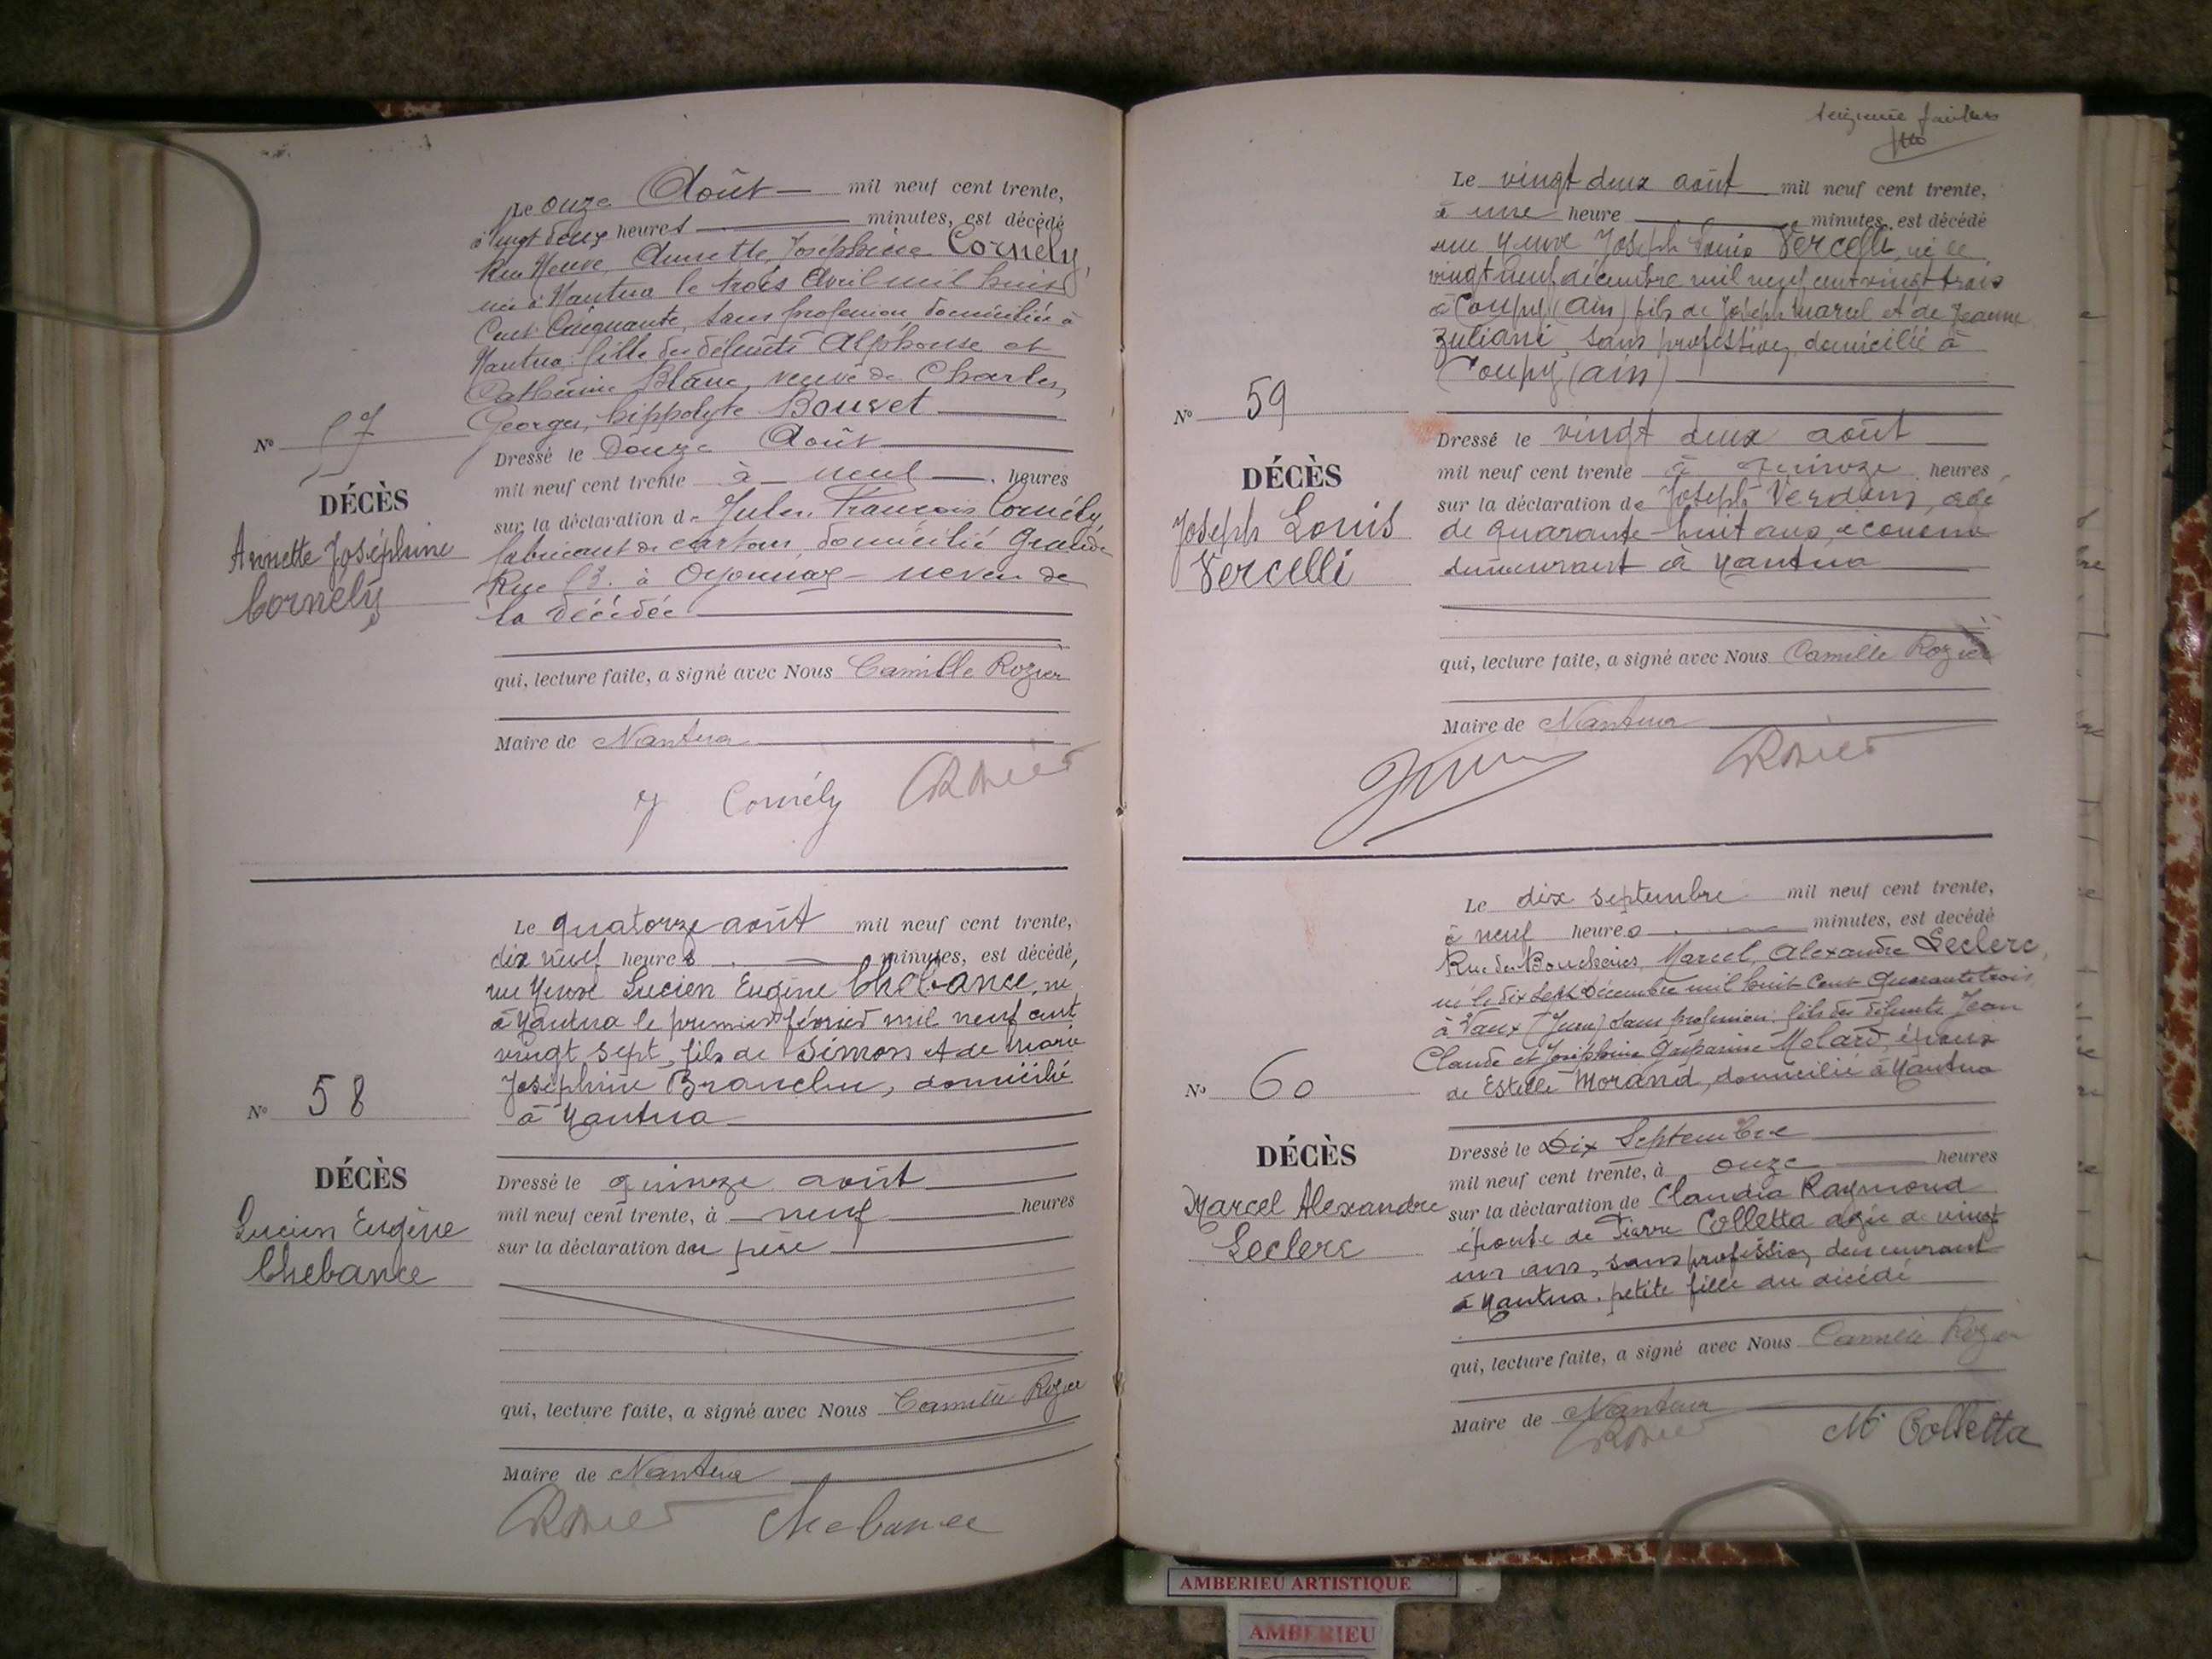 Le onze Août mil neuf cent trente,
à vingt deux heures minutes, est décédé
Rue Neuve, Annette, Joséphine Cornély,
née à Nantua le trois Avril mil huit
Cent Cinquante, sans profession domiciliée à
Nantua, fille des défunts Alphonse et
Catherine Blanc, veuve de Charles,
Georges, hippolyte Bouvet
Nº 57
DÉCÈS
Annette Joséphine
Cornély
Dressé le Douze Août
mil neuf cent trente à neuf heures
sur la déclaration de Jules François Cornély,
fabricant de cartons, domicilié Grande
Rue à Oyonnax - neveu de
la décédée
qui, lecture faite, a signé avec Nous Camille Rozier
Maire de Nantua
J Cornély Rozier
Le quatorze août mil neuf cent trente,
dix neuf heures minutes, est décédé,
rue Neuve Lucien Eugène Chebance, né
à Nantua le premier février mil neuf cent
vingt sept, fils de Simon et de Marie
Joséphine Branchu, domicilié
à Nantua
Nº 58
DÉCÈS
Lucien Eugène
Chebance
Dressé le quinze août
mil neuf cent trente, à neuf heures
sur la déclaration du père
qui, lecture faite, a signé avec Nous Camille Rozier
Maire de Nantua
Rozier Chebance
Le vingt deux août mil neuf cent trente,
à une heure minutes, est décédé
rue Neuve Joseph Louis Vercelli, né le
vingt neuf décembre mil neuf cent vingt trois
à Coupy (Ain) fils de Joseph Marcel et de Jeanne
Zuliani, sans profession, domicilié à
Coupy (Ain)
Nº 59
DÉCÈS
Joseph Louis
Vercelli
Dressé le vingt deux août
mil neuf cent trente à quinze heures
sur la déclaration de Joseph Verdun, âgé
de quarante-huit ans, économe
demeurant à Nantua
qui, lecture faite, a signé avec Nous Camille Rozier
Maire de Nantua
Rozier
Le dix septembre mil neuf cent trente,
à neuf heures minutes, est decédé
Rue des Boucheries, Marcel, Alexandre Leclerc,
né le dix sept Décembre mil huit Cent Quarante trois
à Vaux (Jura) sans profession, fils des défunts Jean
Claude et Joséphine Gasparine Molard, époux
de Estelle Morand, domicilié à Nantua
Nº 60
DÉCÈS
Marcel Alexandre
Leclerc
Dressé le Dix Septembre
mil neuf cent trente, à onze heures
sur la déclaration de Claudia Raymond
épouse de Pierre Colletta agée de vingt
un ans, sans profession, demeurant
à Nantua. petite fille du décédé
qui, lecture faite, a signé avec Nous Camille Rozier
Maire de Nantua
Rozier Me Colletta
AMBERIEU ARTISTIQUE
AMBERIEU